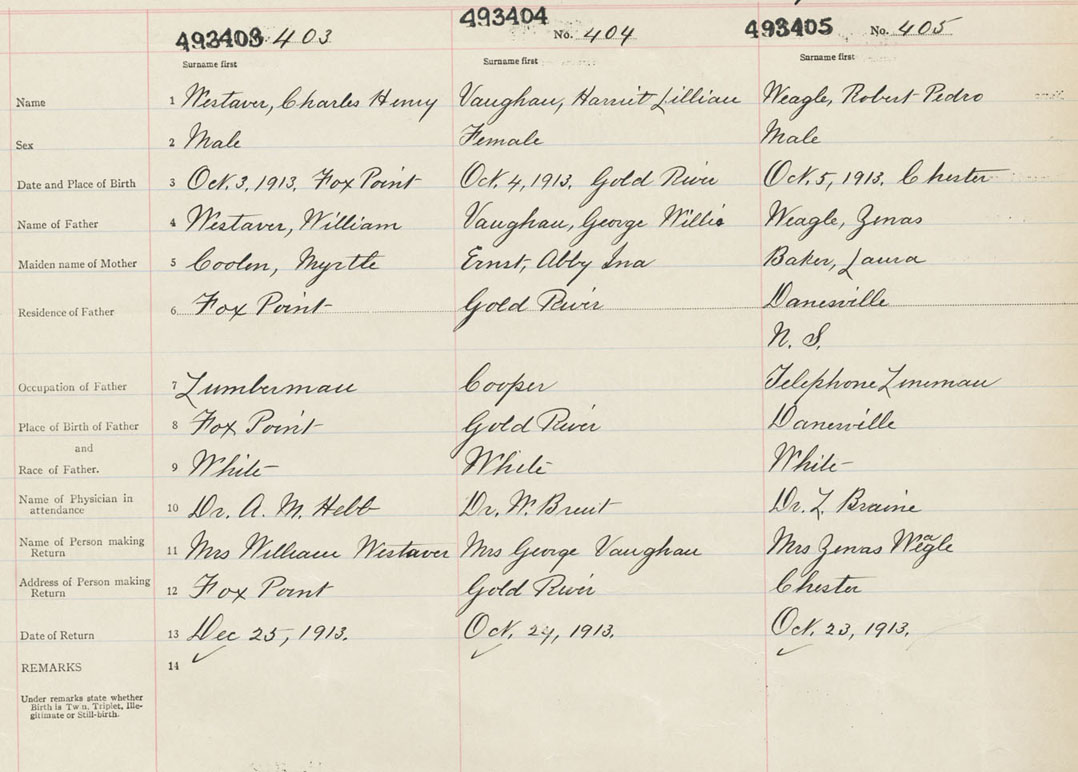 493403 403 493404 No. 404 493405 No. 405
Surname first Surname first Surname first
Name 1 Westaver, Charles Henry Vaughan, Harriet Lillian Weagle, Robert Pedro
Sex 2 Male Female Male
Date and Place of Birth 3 Oct. 3, 1913, Fox Point Oct. 4, 1913. Gold River Oct. 5, 1913. Chester
Name of Father 4 Westaver, William Vaughan, George Willis Weagle, Zenas
Maiden name of Mother 5 Coolen, Myrtle Ernst, Abby Ina Baker, Laura
Residence of Father 6 Fox Point Gold River Danesville
N. S.
Occupation of Father 7 Lumberman Cooper Telephone Lineman
Place of Birth of Father 8 Fox Point Gold River Danesville
and
Race of Father. 9 White White White
Name of Physician in
attendance 10 Dr. A. M. Hebb Dr. W. Dr. L. Braine
Name of Person making
Return 11 Mrs William Westaver Mrs George Vaughan Mrs Zenas Weagle
Address of Person making
Return 12 Fox Point Gold River Chester
Date of Return 13 Dec 25, 1913. Oct. 24, 1913. Oct. 23, 1913.
REMARKS 14
Under remarks state whether
Birth is Twin, Triplet, Ille-
gitimate or Still-birth.